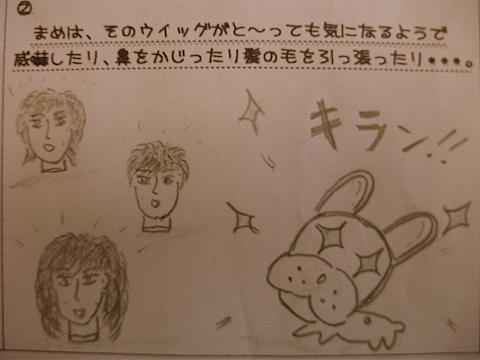 ②
まめは、そのウイッグがと～っても気になるようで
威嚇したり、鼻をかじったり髪の毛を引っ張ったり・・・。
キラン!!